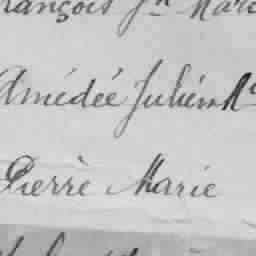 François Jh Marie
Amédée Julien M
Pierre Marie